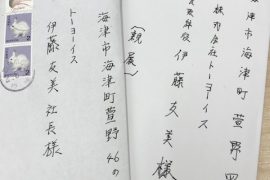 津市海津町萱野四
株式会社トーヨーイス
伊藤友美様
（親展）
海津市海津町萱野46の
トーヨーイス
伊藤友美社長様
2
2